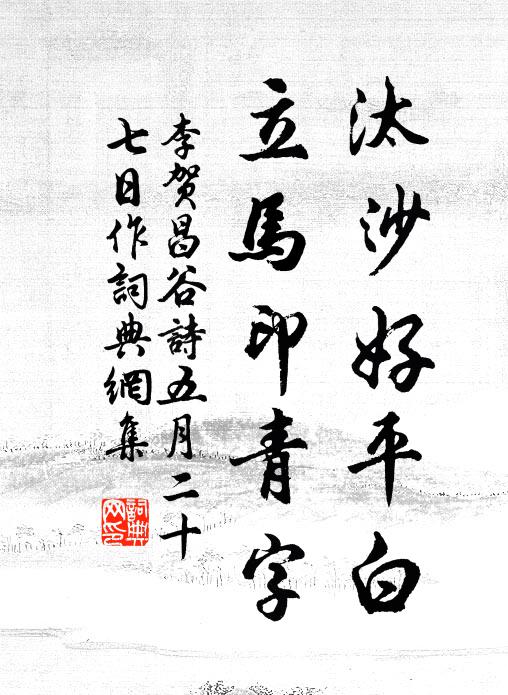 汰沙好平白
立馬印青字
李賀昌谷詩五月二十
七日作詞典網集
詞典
网